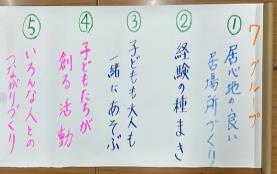 7グループ
①居心地の良い
居場所づくり
②経験の種まき
③子どもも大人も
一緒にあそぶ
④子どもたちが
創る活動
⑤いろんな人との
つながりづくり